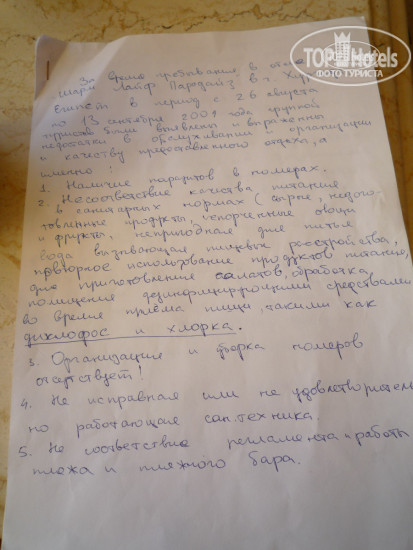 TOP Hotels
ФОТО ТУРИСТА
За время пребывания в отеле
Шарм Лайф Парадайз в г. 
Египет в период с 26 августа
по 13 сентября 2009 года группой
туристов были выявлены и выражены
недостатки в обслуживании и организации
и качеству предоставленного отдыха, а
именно:
1. Наличие паразитов в номерах.
2. Несоответствие качества питания
в санитарных нормах (сырые, недого-
товленные продукты, испорченные овощи
и фрукты, непригодная для питья
вода вызывающая пищевых расстройства,
повторное использование продуктов питания,
для приготовления салатов, обработка
помещения дезинфицирующими средствами
во время приема пищи, такими как
дихлофос и хлорка.
3. Организация и уборка номеров
отсутствует!
4. Не исправная или не удовлетворитель
но работающая сан.техника.
5. Не соответствие регламента и работы
пляжа и пляжного бара.